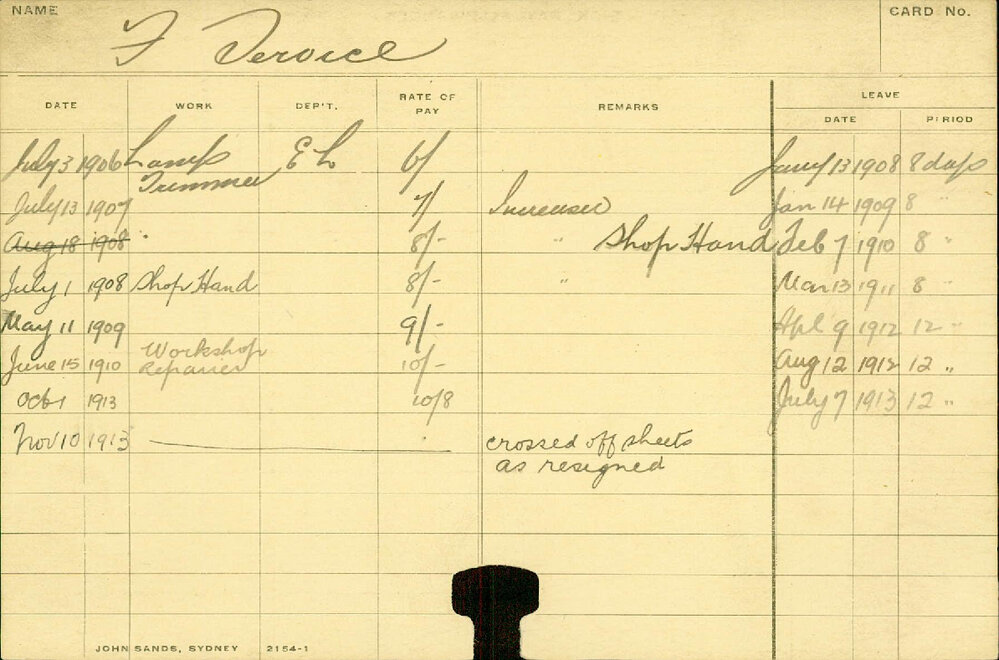 NAME
CARD No.
F Service
DATE WORK DEP'T. RATE OF PAY REMARKS LEAVE
DATE PERIOD
July 3 1906 Lamp Trimmer E L 6/ Jany 13 1908 8 days
July 13 1907 7/ Increased Jan 14 1909 8 "
Aug 18 1908 " 8/- " Shop Hand Feb 7 1910 8 "
July 1 1908 Shop Hand 8/- " Mar 13 1911 8 "
May 11 1909 9/- Apl 9 1912 12 "
June 15 1910 Workshop Repairer 10/- Aug 12 1912 12 "
Oct 1 1913 10/8 July 7 1913 12 "
Nov 10 1913 crossed off sheets
as resigned
JOHN SANDS, SYDNEY 2154-1